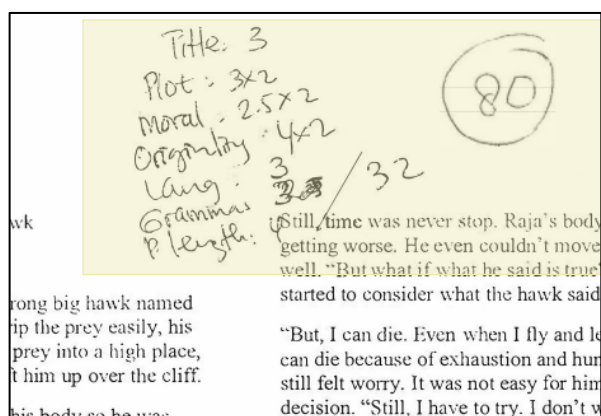 Title: 3
Plot: 3x2
Moral: 2.5x2
Originlity: 4x2
Lang: 3
Grammar
P. length: 4
/32
80
wk
rong big hawk named
rip the prey easily, his
prey into a high place,
t him up over the cliff.
his body so he was
Still, time was never stop. Raja's body
getting worse. He even couldn't move
well. “But what if what he said is true”
started to consider what the hawk said
“But, I can die. Even when I fly and le
can die because of exhaustion and hun
still felt worry. It was not easy for him
decision. “Still, I have to try. I don't w